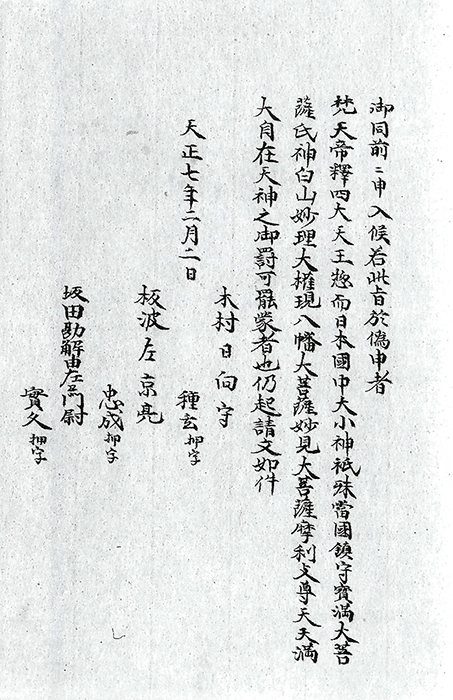 御同前ニ申入候若此旨於偽申者
梵天帝釋四大天王惣而日本國中大小神祇殊當國鎮守寳満大菩
薩氏神白山妙理大權現八幡大菩薩妙見大菩薩摩利支尊天天満
大自在天神之御罸可罷蒙者也仍起請文如件
天正七年二月二日
木村日向守
種玄押字
板波左京亮
忠成押字
坂田勘解由左衛門尉
實久押字